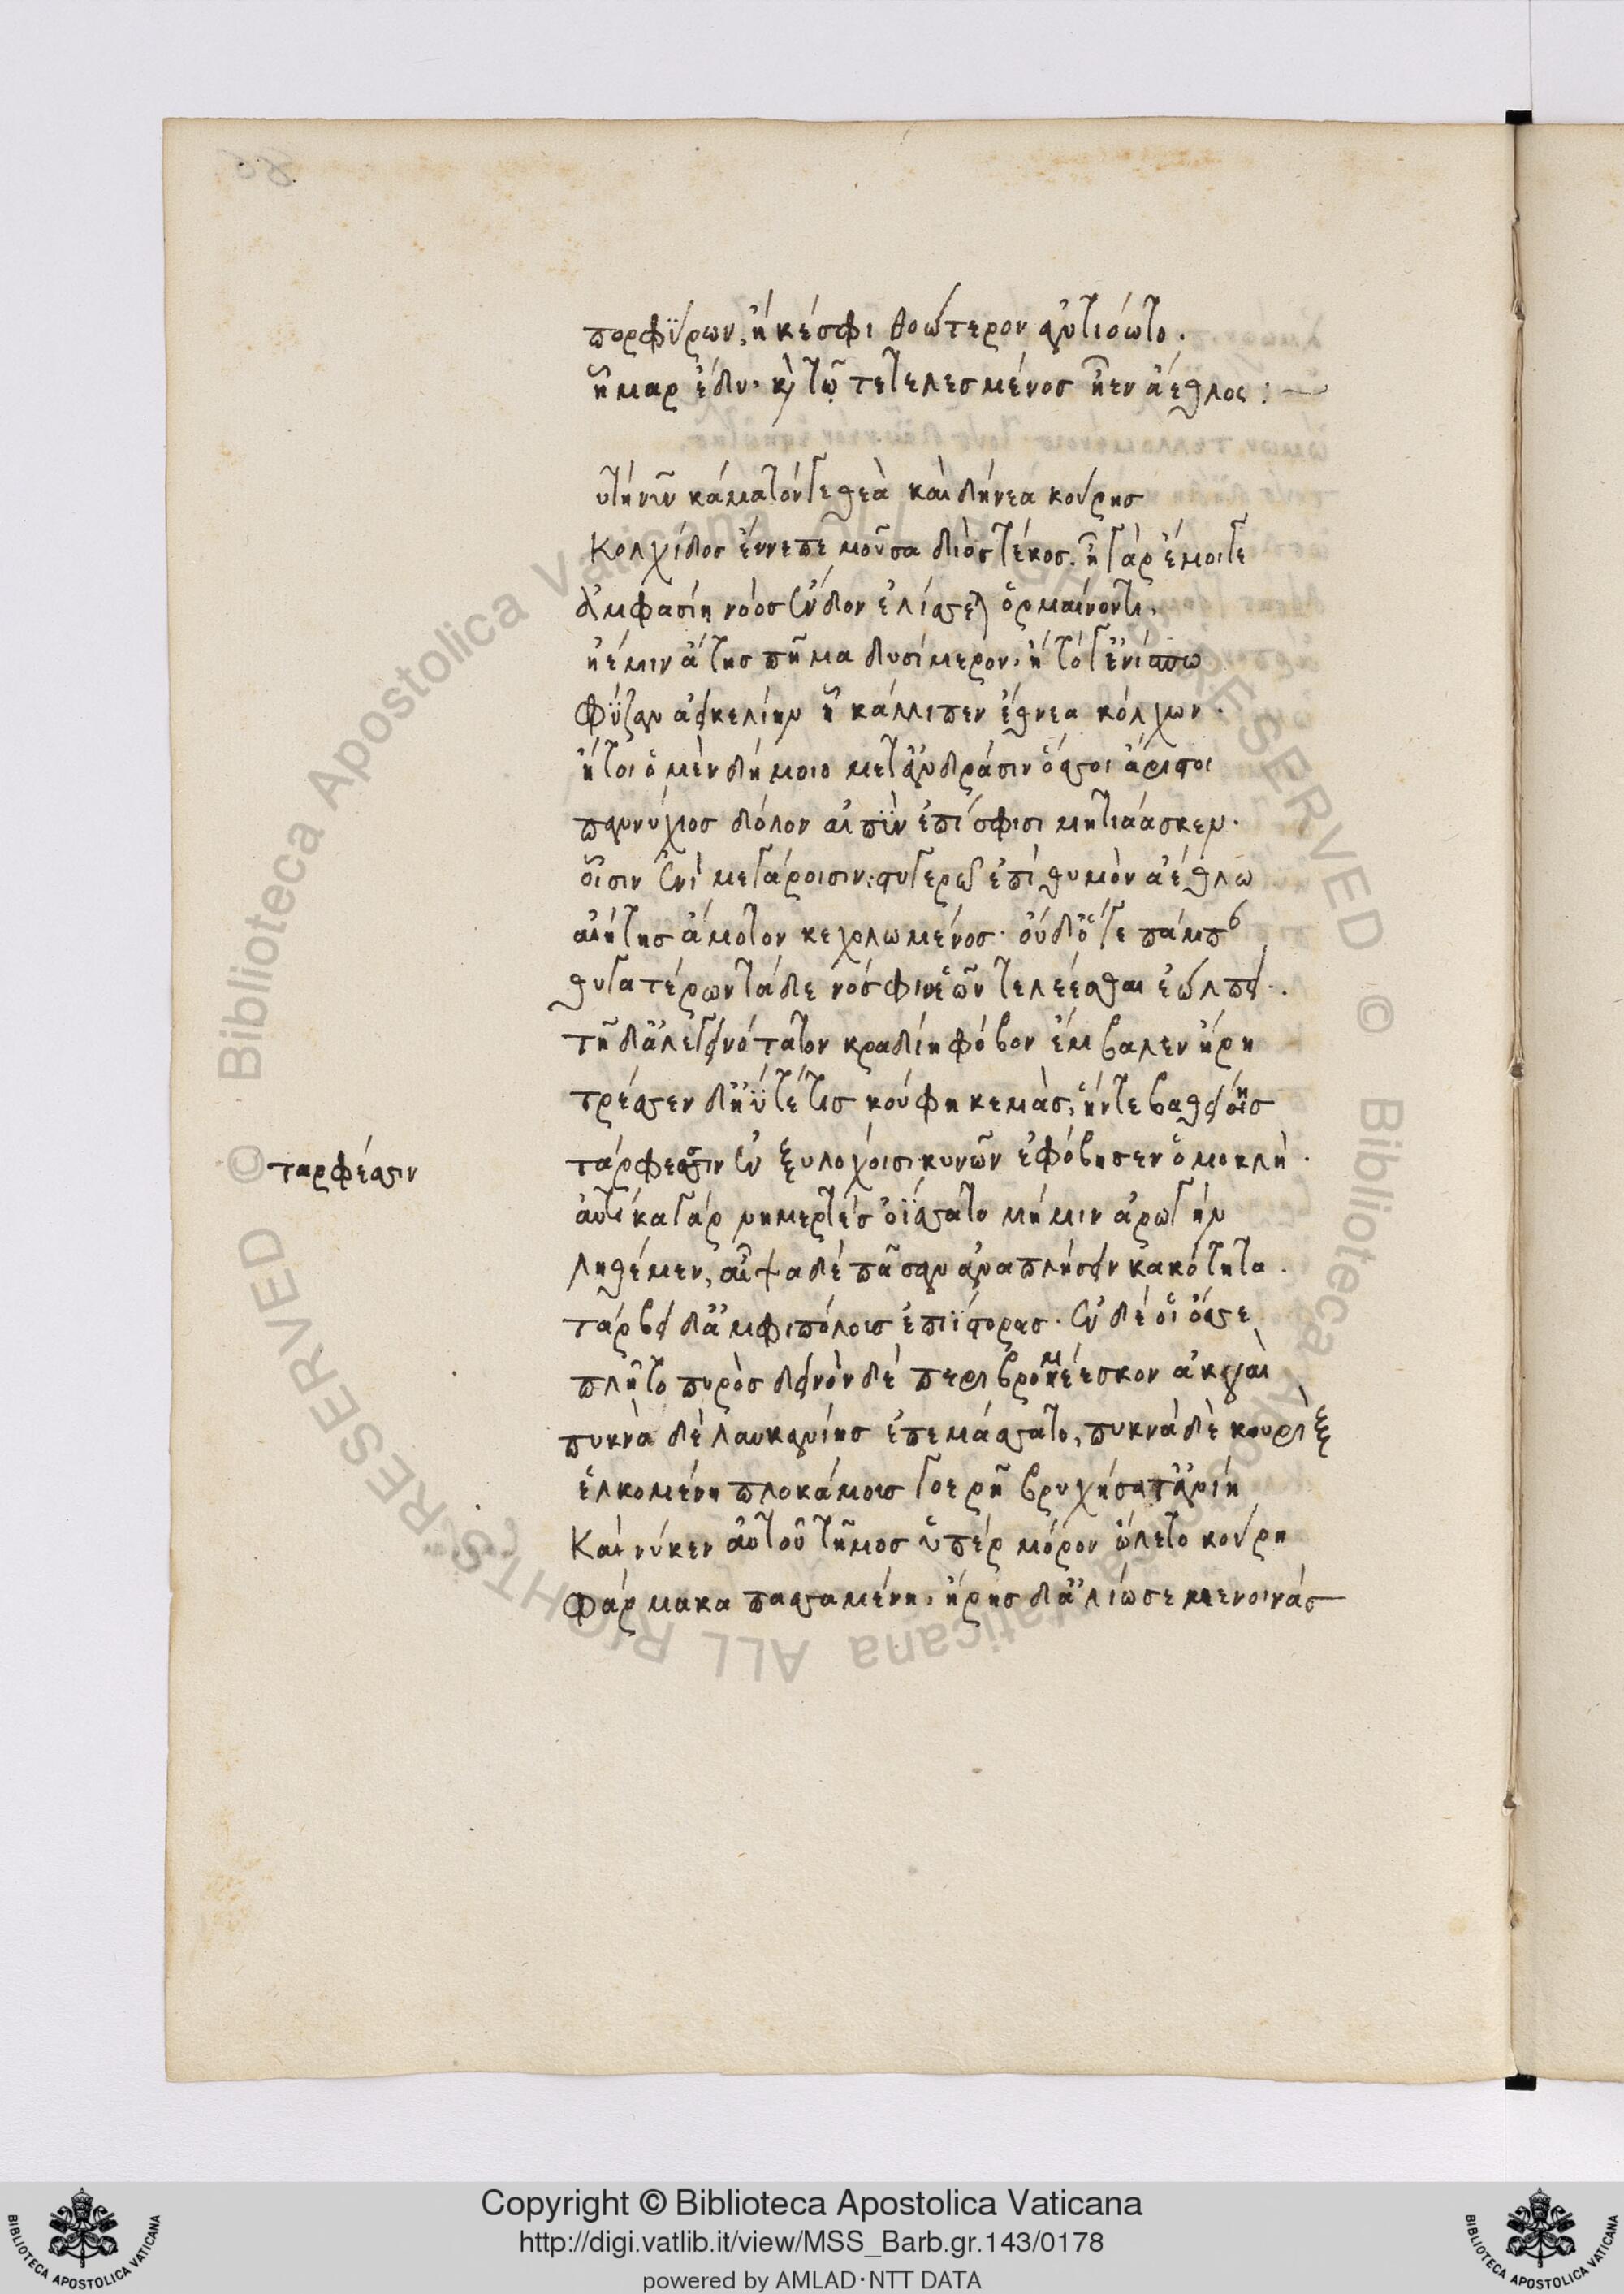 πορφύρων, ἤ κέ σφι θοώτερον ἀντιόωτο.
ἦμαρ ἔδυ. κ̀ τῷ τετελεσμένος ἦεν ἄεθλος : —
υτὴ νῦν κάματόν γε θεὰ καὶ δήνεα κούρης
Κολχίδος ἔννεπε μοῦσα διὸς τέκος. ἦ γὰρ ἔμοιγε
ἀμφασίη νόος ἔνδον ἑλίσσεται ὁρμαίνοντι.
ἠέ μιν ἄτης πῆμα δυσίμερον. ἢ τόγ ἐνίσπω
φύζαν ἀεικελίην ἣ κάλλιπεν ἔθνεα κόλχων.
ἤτοι ὁ μὲν δήμοιο μετ ἀνδράσιν ὅσσοι ἄριστοι
παννύχιος δόλον αἰπὺν ἐπί σφισι μητιάασκεν.
οἷσιν ἐνὶ μεγάροισιν. στυγερῶ ἐπὶ θυμὸν ἀέθλω
αἰήτης ἄμοτον κεχολωμένος. οὐδ ὅγε πάμπ
θυγατέρων τάδε νόσφιν ἑῶν τελέεσθαι ἐώλπει.
τῇ δ ἀλεγεινότατον κραδίη φόβον ἔμβαλεν ἥρη
τρέσσεν δ ἠύτέ τις κούφη κεμὰς, ἥντε βαθείης
τάρφεσιν ἐν ξυλόχοισι κυνῶν ἐφόβησεν ὁμοκλή.
ταρφέσσιν
αὐτίκα γάρ νημερτές ὀΐσσατο μή μιν ἀρωγήν
ληθέμεν, αἶψα δέ πᾶσαν ἀναπλήσειν κακότητα.
τάρβει δ ἀμφιπόλους ἐπιΐστορας. ἐν δέ οἱ ὄσσε
πλῆτο πυρὸς δεινὸν δέ περιβρομέεσκον ἀκουαὶ
πυκνὰ δὲ λαυκανίης ἐπεμάσσατο, πυκνὰ δὲ κουρὶξ
ἑλκομένη πλοκάμους γοερῆ βρυχήσατ ἀνίη
Καί νύ κεν αὐτοῦ τῆμος ὑπέρ μόρον ὤλετο κούρη
φάρμακα πασσαμένη, ἥρης δ ἁλίωσε μενοινάς
Copyright © Biblioteca Apostolica Vaticana
http://digi.vatlib.it/view/MSS_Barb.gr.143/0178
powered by AMLAD·NTT DATA